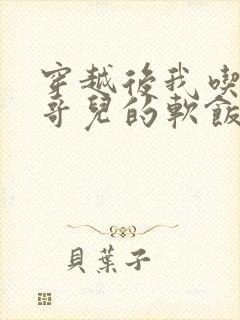 穿越後我喫
哥兒的軟飯
貝葉子